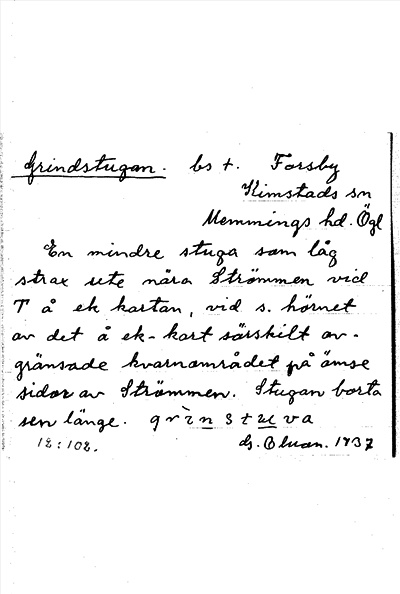 Grindstugan. bs t. Forsby
Kimstads sn
Memmings hd. Ögl
En mindre stuga som låg
strax ute nära Strömmen vid
T å ek kartan, vid s. hörnet
av det å ek-kart särskilt av-
gränsade kvarnområdet på ömse
sidor av Strömmen. Stugan borta
sen länge. grìnstuva
12:102. 1937